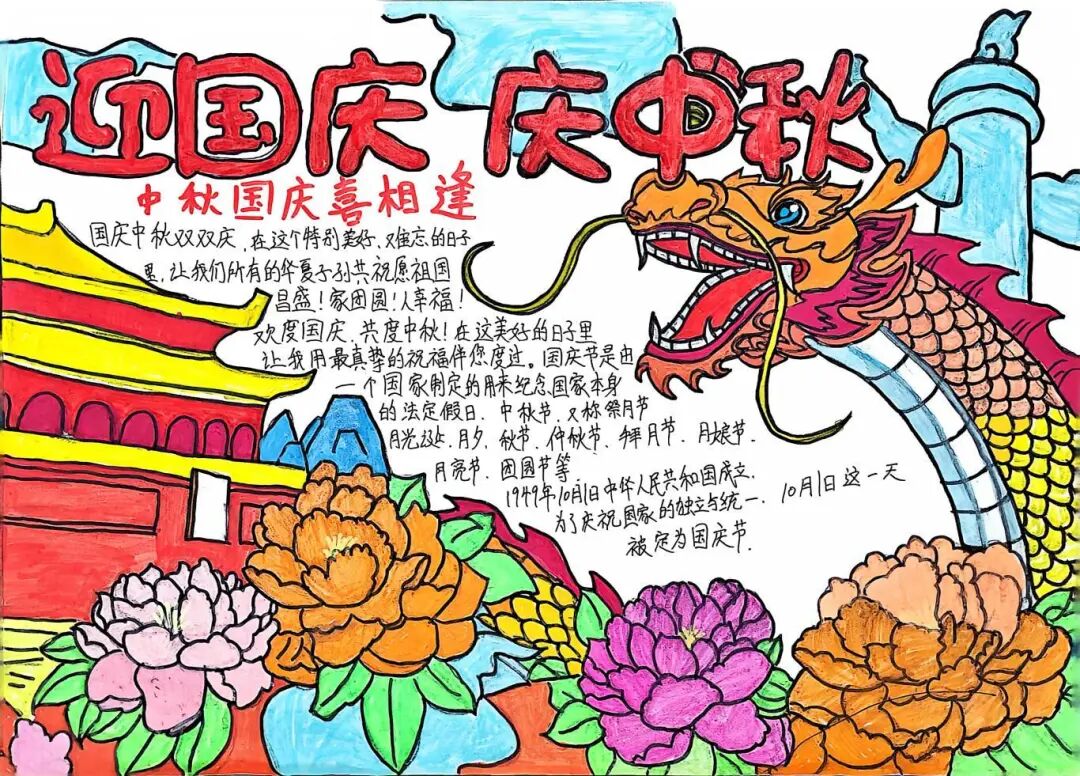 迎国庆 庆中秋
中秋国庆喜相逢
国庆中秋双双庆,在这个特别美好、又难忘的日子
里,让我们所有的华夏子孙共祝愿祖国
昌盛!家团圆!人幸福!
欢度国庆、共度中秋!在这美好的日子里
让我用最真挚的祝福伴您度过。国庆节是由
一个国家制定的用来纪念国家本身
的法定假日、中秋节、又称祭月节
月光诞、月夕、秋节、仲秋节、拜月节、月娘节、
月亮节、团圆节等
1949年10月1日中华人民共和国成立、
为了庆祝国家的独立与统一、10月1日这一天
被定为国庆节.